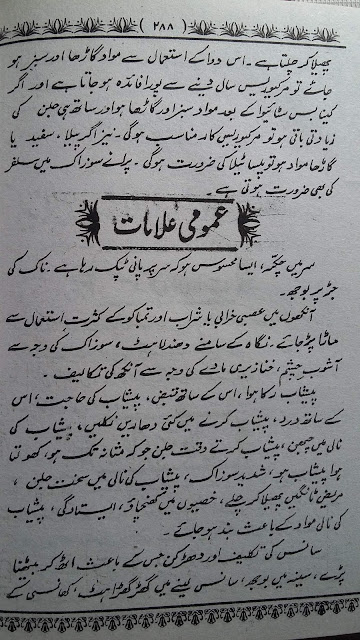 (۲۸۸)
پھیلا کر چلتا ہے۔ اس دوا کے استعمال سے مواد گاڑھا اور سبز ہو
جائے تو مرکیورس سال دینے سے پورا فائدہ ہو جاتا ہے اور اگر
کینابس سٹائیوا کے بعد مواد سبز اور گاڑھا ہو اور ساتھ ہی جلن کی
زیادتی باقی ہو تو مرکیورس کار مناسب ہو گی۔ نیز اگر پیلا، سفید یا
گاڑھا مواد ہو تو پلسٹیلا کی ضرورت ہو گی۔ پرانے سوزاک میں سلفر
کی بھی ضرورت ہوتی ہے۔
عمومی علامات
سر میں چکر، ایسا محسوس ہو کہ سر پر پانی ٹپک رہا ہے۔ ناک کی
جڑ پر بوجھ۔
آنکھوں میں عصبی خرابی یا شراب اور تمباکو کے کثرت استعمال سے
ماڑا پڑ جائے۔ نگاہ کے سامنے دھندلاہٹ، سوزاک کی وجہ سے
آشوب چشم، خنازیری مادے کی وجہ سے آنکھ کی تکالیف۔
پیشاب رکا ہوا، اس کے ساتھ قبض۔ پیشاب کی حاجت، اس
کے ساتھ درد، پیشاب کرنے میں کئی دھاریں نکلیں، پیشاب کی
نالی میں چبھن، پیشاب کرتے وقت جلن جو کہ مثانہ تک ہو، کھولتا
ہوا پیشاب ہو، شدید سوزاک، پیشاب کی نالی میں سخت جلن،
مریض ٹانگیں پھیلا کر چلے، خصیوں میں کھنچاؤ، ایستادگی، پیشاب
کی نالی مواد کے باعث بند ہو جائے۔
سانس کی تکلیف اور دھڑکن جس کے باعث اٹھ کر بیٹھنا
پڑے، سینہ میں بوجھ، سانس لینے میں گھڑگھڑاہٹ، کھانسی کے